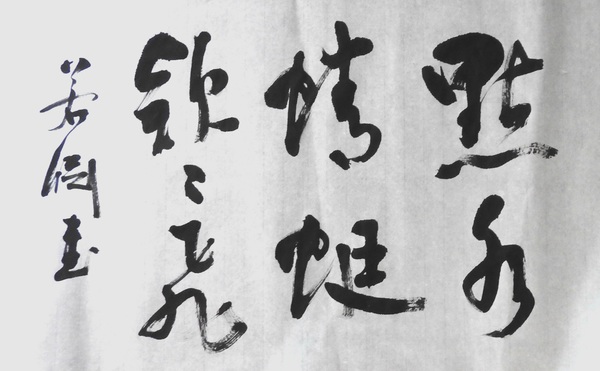 點水
蜻蜓
款〻飛
若 書